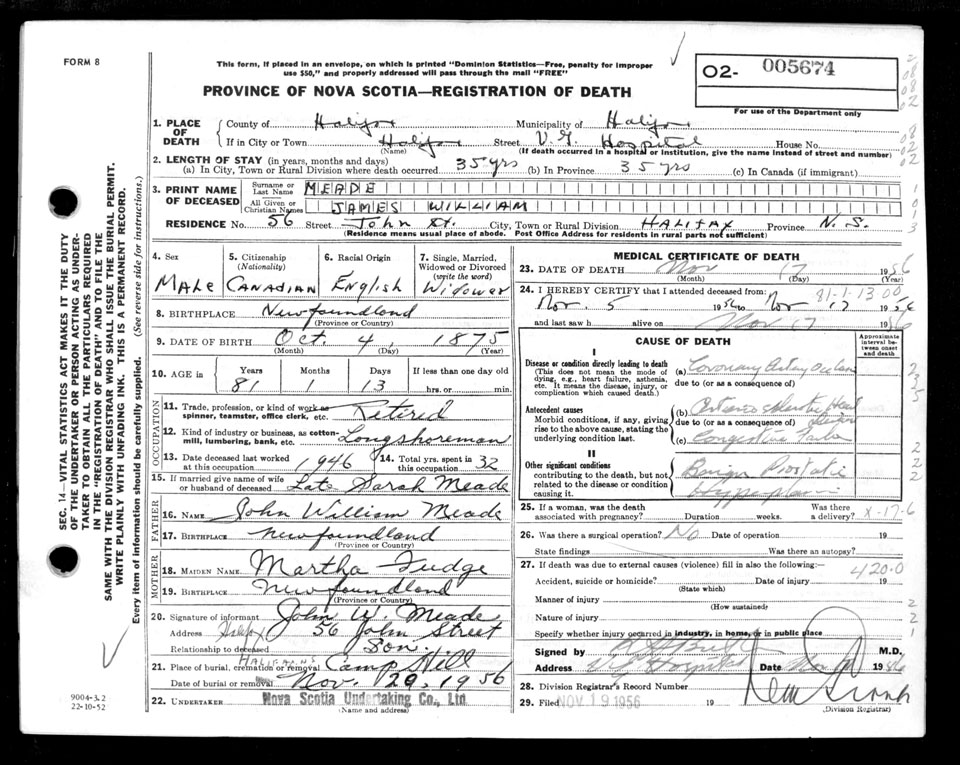 FORM 8
This form, if placed in an envelope, on which is printed "Dominion Statistics—Free, penalty for improper
use $50," and properly addressed will pass through the mail "FREE"
PROVINCE OF NOVA SCOTIA—REGISTRATION OF DEATH
O2- 005674
For use of the Department only
1. PLACE OF DEATH
County of Halifax Municipality of Halifax
If in City or Town Halifax Street V.G. Hospital House No.
(Name) (If death occurred in a hospital or institution, give the name instead of street and number)
2. LENGTH OF STAY (in years, months and days)
(a) In City, Town or Rural Division where death occurred 35 yrs (b) In Province 35 yrs (c) In Canada (if immigrant)
3. PRINT NAME OF DECEASED
Surname or Last Name MEADE
All Given or Christian Names JAMES WILLIAM
RESIDENCE No. 56 Street John St. City, Town or Rural Division HALIFAX Province N.S.
(Residence means usual place of abode. Post Office Address for residents in rural parts not sufficient)
4. Sex Male
5. Citizenship (Nationality) CANADIAN
6. Racial Origin English
7. Single, Married, Widowed or Divorced (write the word) Widower
8. BIRTHPLACE Newfoundland
(Province or Country)
9. DATE OF BIRTH Oct. 4, 1875
(Month) (Day) (Year)
10. AGE in Years Months Days If less than one day old
81 1 13 hrs. or min.
OCCUPATION
11. Trade, profession, or kind of work as spinner, teamster, office clerk, etc. Retired
12. Kind of industry or business, as cotton-mill, lumbering, bank, etc. Longshoreman
13. Date deceased last worked at this occupation 1946 14. Total yrs. spent in this occupation 32
15. If married give name of wife or husband of deceased Late Sarah Meade
FATHER
16. NAME John William Meade
17. BIRTHPLACE Newfoundland
(Province or Country)
MOTHER
18. MAIDEN NAME Martha Fudge
19. BIRTHPLACE Newfoundland
(Province or Country)
20. Signature of informant John W. Meade
Address Halifax 56 John Street
Relationship to deceased Son.
21. Place of burial, cremation or removal HALIFAX Camp Hill
Date of burial or removal Nov. 20, 1956
22. UNDERTAKER Nova Scotia Undertaking Co., Ltd.
(Name and address)
MEDICAL CERTIFICATE OF DEATH
23. DATE OF DEATH Nov 17 1956
(Month) (Day) (Year)
24. I HEREBY CERTIFY that I attended deceased from: 81-1-13 00
Nov. 5 1956 to Nov 17 1956
and last saw h alive on Nov 17 1956
CAUSE OF DEATH
Approximate interval between onset and death
I
Disease or condition directly leading to death
(This does not mean the mode of dying, e.g., heart failure, asthenia, etc. It means the disease, injury, or complication which caused death.)
(a) Coronary Artery
due to (or as a consequence of)
Antecedent causes
Morbid conditions, if any, giving rise to the above cause, stating the underlying condition last.
(b) Heart
due to (or as a consequence of)
(c) Congestive
II
Other significant conditions
contributing to the death, but not related to the disease or condition causing it.
Benign Prostatic
25. If a woman, was the death associated with pregnancy? Duration weeks. Was there a delivery? X-17-6
26. Was there a surgical operation? No Date of operation 19
State findings Was there an autopsy?
27. If death was due to external causes (violence) fill in also the following:— 420.0
Accident, suicide or homicide? Date of injury 19
(State which)
Manner of injury
(How sustained)
Nature of injury
Specify whether injury occurred in industry, in home, or in public place
Signed by M.D.
Address V.G. Hospital Date Nov 1956
28. Division Registrar's Record Number
29. Filed NOV 19 1956 19
(Division Registrar)
SEC. 14—VITAL STATISTICS ACT MAKES IT THE DUTY
OF THE UNDERTAKER OR PERSON ACTING AS UNDER-
TAKER TO OBTAIN ALL THE PARTICULARS REQUIRED
IN THE "REGISTRATION OF DEATH" AND TO FILE THE
SAME WITH THE DIVISION REGISTRAR WHO SHALL ISSUE THE BURIAL PERMIT.
WRITE PLAINLY WITH UNFADING INK. THIS IS A PERMANENT RECORD.
Every item of information should be carefully supplied. (See reverse side for instructions.)
9004-3.2
22-10-52